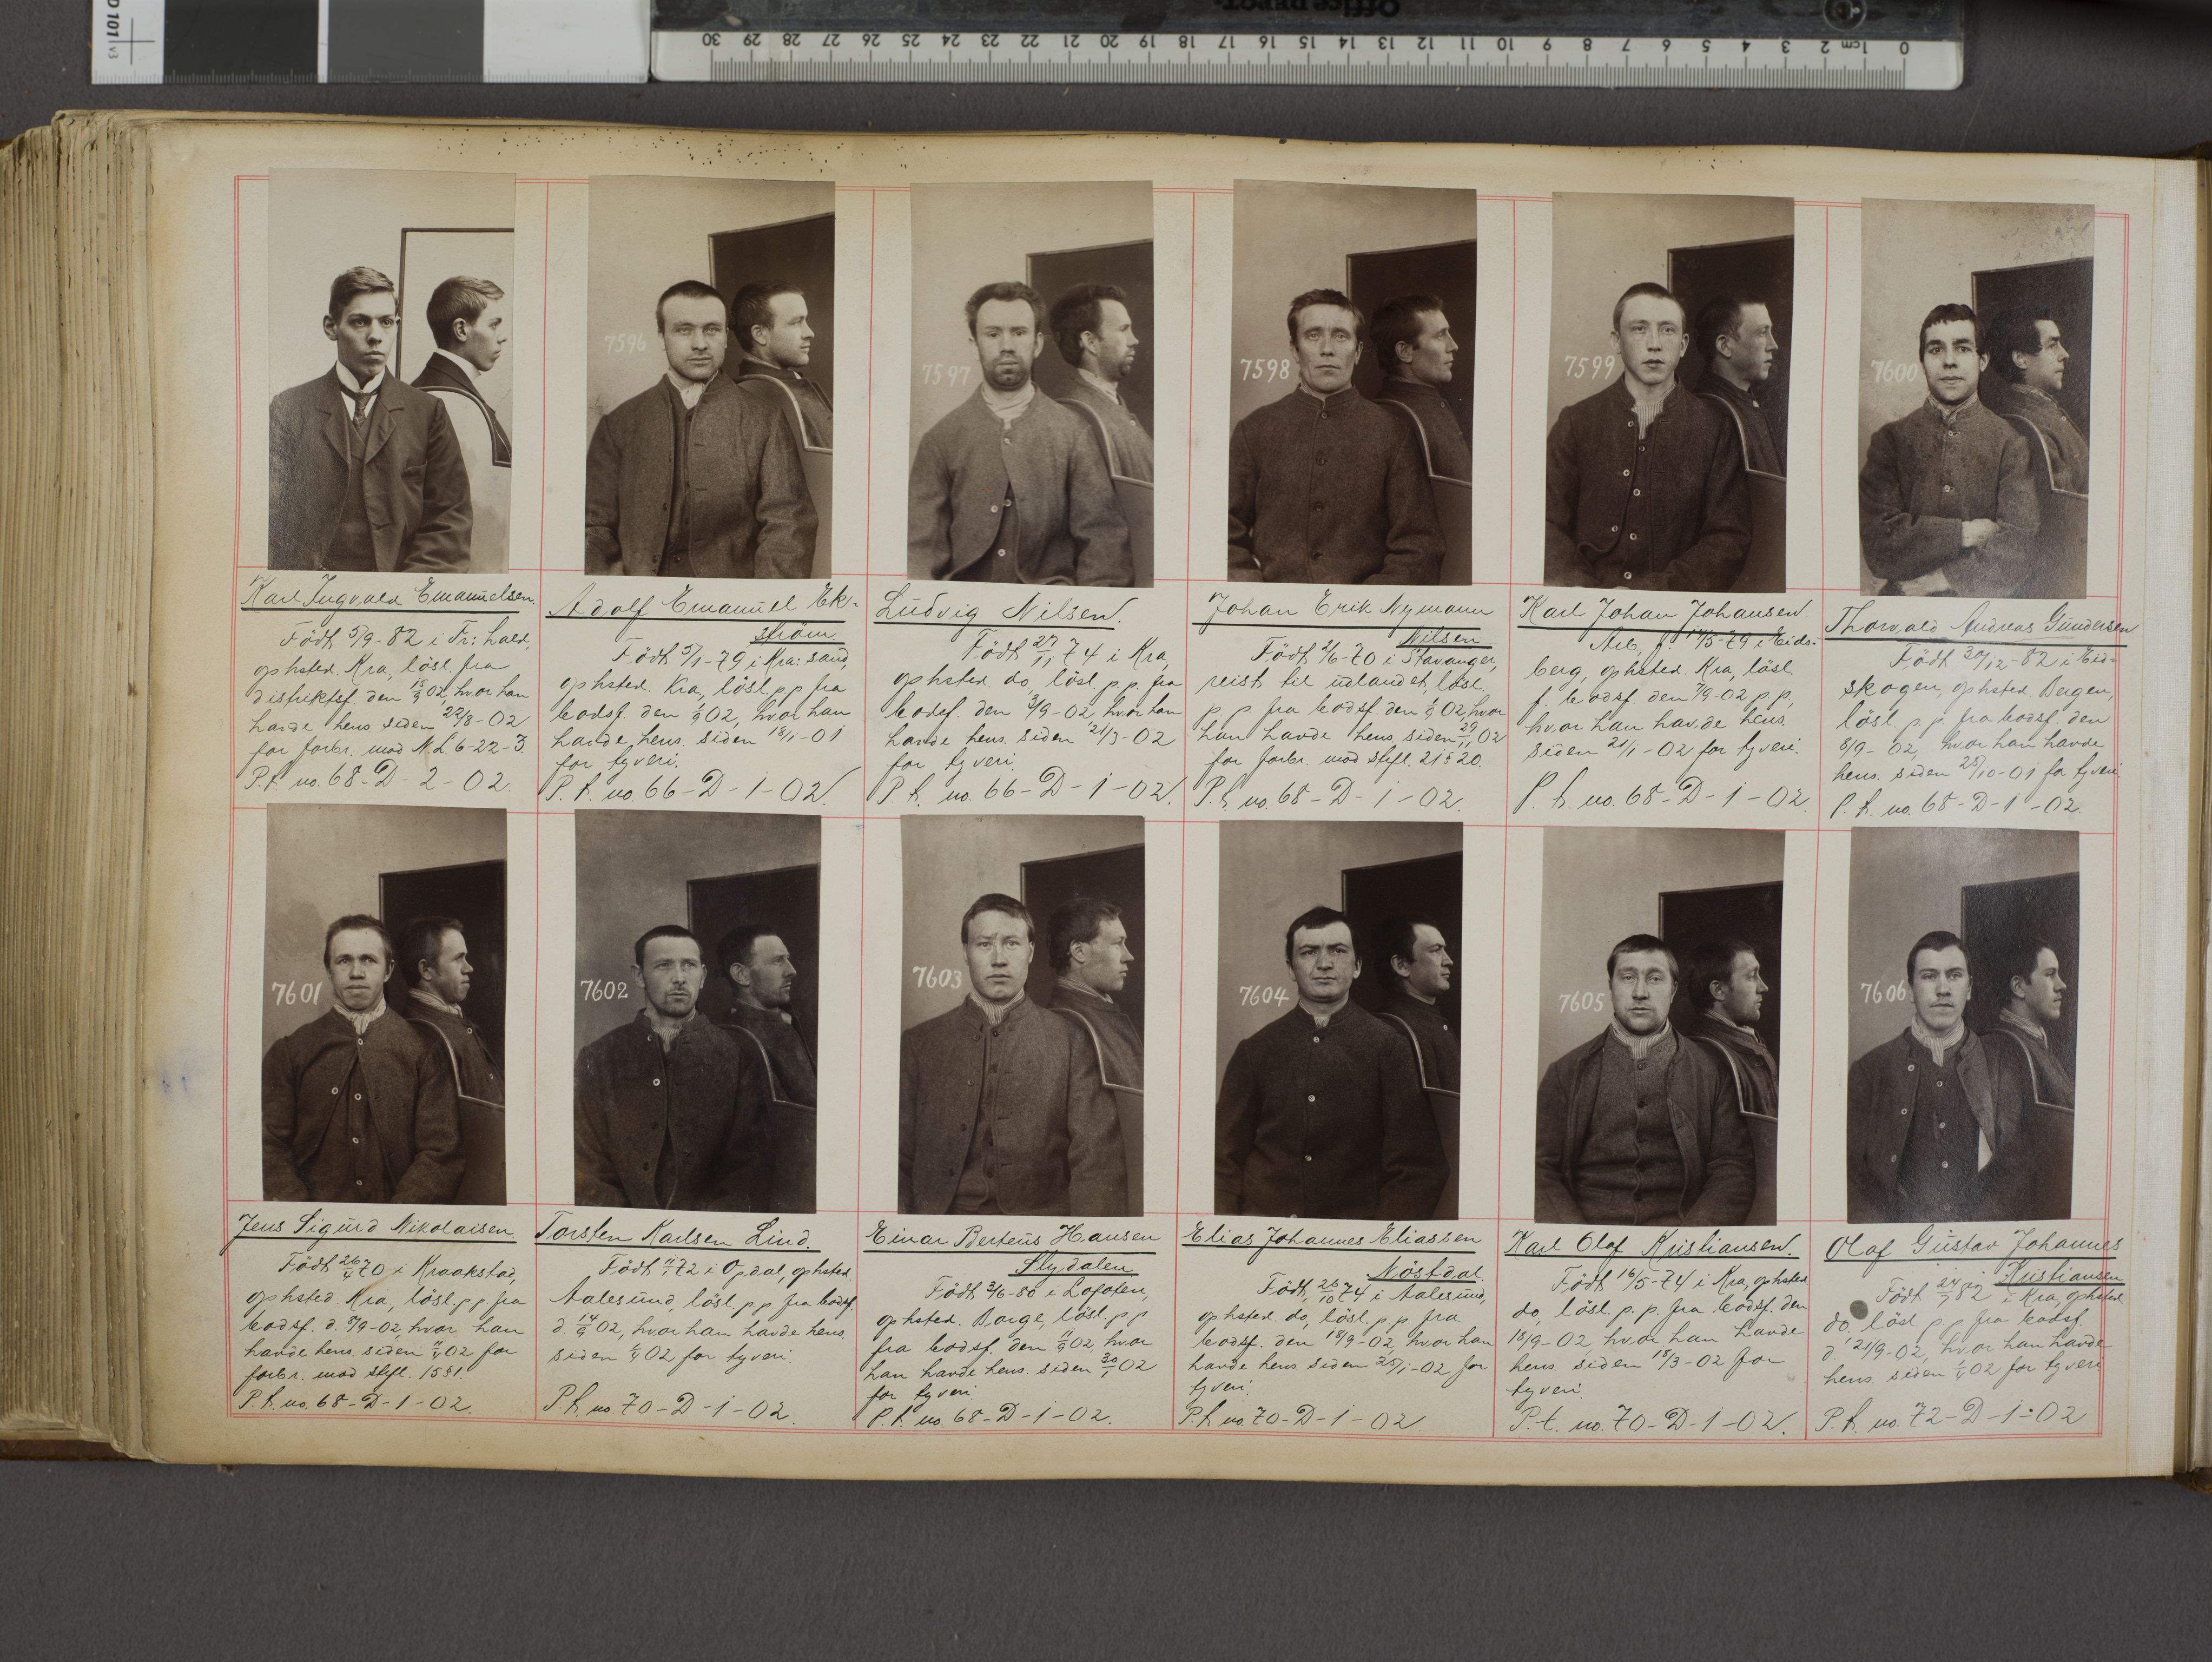 Office DEPOT
D 101 v3
30 29 28 27 26 25 24 23 22 21 20 19 18 17 16 15 14 13 12 11 10 9 8 7 6 5 4 3 2 1cm 0
Karl Ingvald Emanuelsen.
Födt 5/9-82 i Fr: hald,
ophsted. Kra, lösl. fra
distriktsf. den 15/9 02, hvor han
havde hens. siden 22/8-02
for forbr. mod N.L 6-22-3.
P.t. no. 68-D-2-02.
7596
Adolf Emanuel Ek-
ström.
Födt 5/1-79 i Kra: sand,
ophsted. Kra, lösl. p p fra
bodsf. den 1/9 02, hvor han
havde hens. siden 18/1-01
for tyveri.
P.t. no. 66-D-1-02.
7597
Ludvig Nilsen.
Födt 27/11 74 i Kra,
ophsted. do, lösl. p. p. fra
bodsf. den 3/9-02, hvor han
havde hens. siden 21/3-02
for tyveri.
P.t. no. 66-D-1-02.
7598
Johan Erik Nymann
Nilsen
Födt 2/6-70 i Stavanger,
reist til udlandet, lösl.
p p fra bodsf. den 1/9 02, hvor
han havde hens. siden 02
for forbr. mod stfl. 21 § 20.
P.t. no. 68-D-1-02.
7599
Karl Johan Johansen.
Arb, f. 14/5-79 i Eids-
berg, ophsted. Kra, lösl.
f. bodsf. den 7/9-02 p p,
hvor han havde hens.
siden 21/1-02 for tyveri.
P.t. no. 68-D-1-02.
7600
Thorvald Andreas Gundersen
Födt 30/12-82 i Eid-
skogen, ophsted. Bergen,
lösl. p p fra bodsf. den
8/9-02, hvor han havde
hens. siden 25/10-01 for tyveri
P.t. no. 68-D-1-02.
7601
Jens Sigurd Nikolaisen
Födt 26/4 70 i Kraakstad,
ophsted. Kra, lösl. p p fra
bodsf. d. 9/9-02, hvor han
havde hens. siden 11/4 02 for
forbr. mod stfl. 15 § 1.
P.t. no. 68-D-1-02.
7602
Torsten Karlsen Lind.
Födt 11/1 72 i Opdal, ophsted.
Aalesund, lösl. p p fra bodsf.
d 14/9 02, hvor han havde hens.
siden 02 for tyveri
P.t. no. 70-D-1-02.
7603
Einar Berteus Hansen
Slydalen
Födt 3/6-80 i Lofoten,
ophsted. Borge, lösl. p p
fra bodsf. den 11/9 02, hvor
han havde hens. siden 30/1 02
for tyveri.
P.t. no. 68-D-1-02.
7604
Elias Johannes Eliassen
Nöstdal.
Födt 26/10 74 i Aalesund,
ophsted. do, lösl. p p fra
bodsf. den 18/9-02, hvor han
havde hens. siden 25/1-02 for
tyveri.
P.t. no. 70-D-1-02
7605
Karl Olaf Kristiansen.
Födt 16/5-74 i Kra, ophsted.
do, lösl. p. p. fra bodsf. den
18/9-02, hvor han havde
hens. siden 15/3-02 for
tyveri.
P.t. no. 70-D-1-02.
7606
Olaf Gustav Johannes
Kristiansen
Födt 24/7 82 i Kra, ophsted.
do, lösl p p fra bodsf.
d 21/9-02, hvor han havde
hens. siden 02 for tyveri
P.t. no. 72-D-1-02